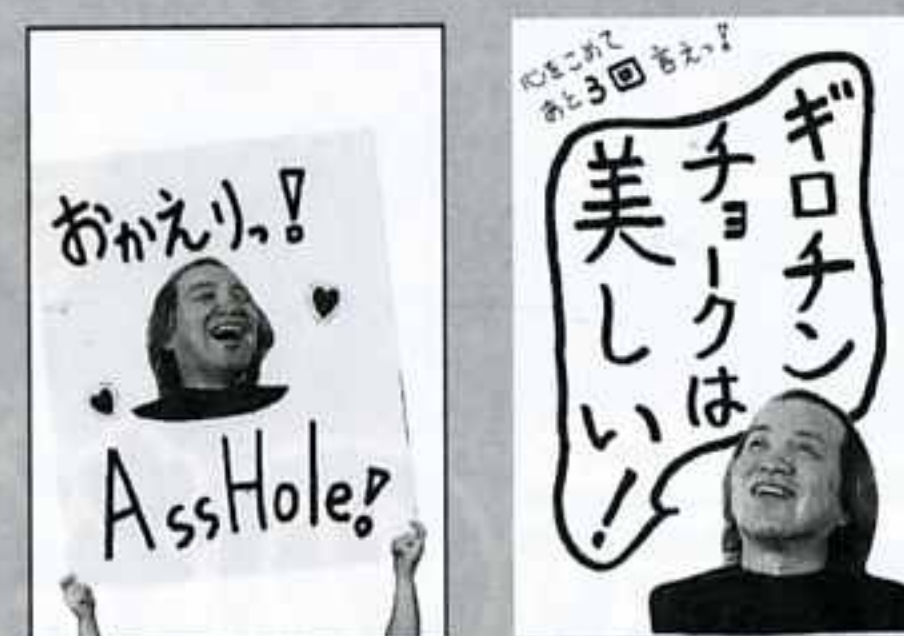 おかえりっ!
AssHole!
心をこめて
あと3回言えっ!
ギロチン
チョークは
美しい!